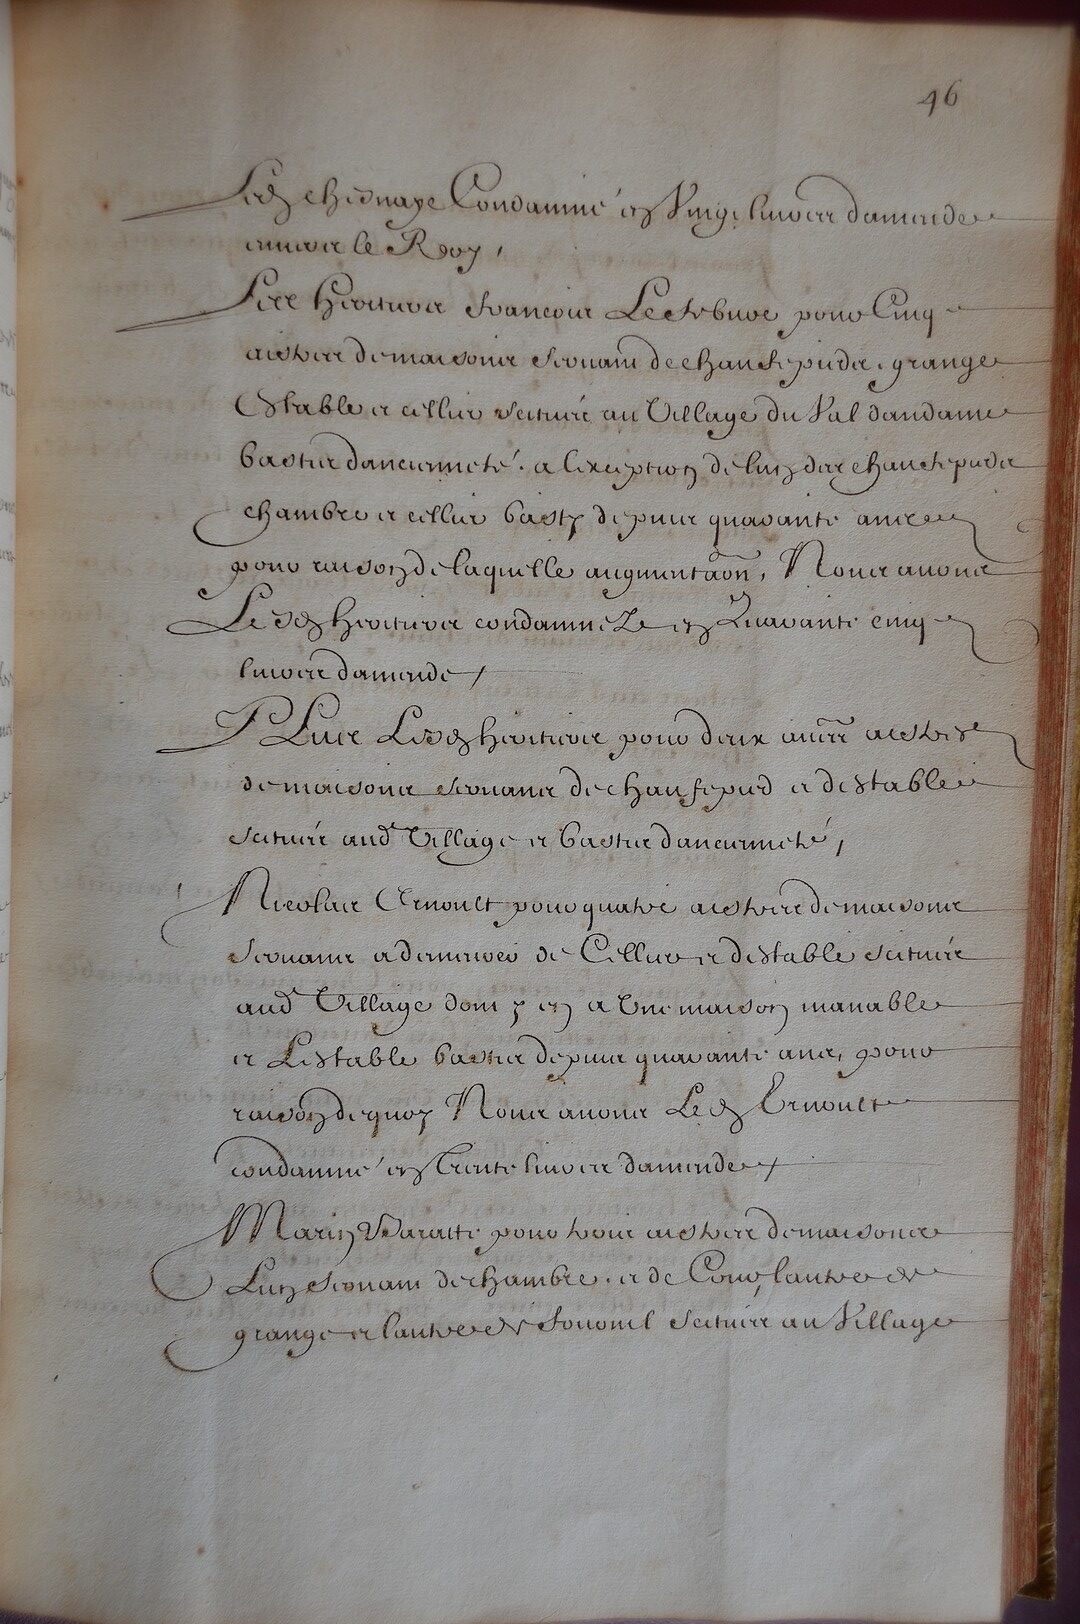 46
Led chesnaye Condamné en Vingt livres damende
envers le Roy,
Les heritiers francois Lefebure pour Cinq
aistres de maisons servans de chaufepieds, grange
Estable et cellier scituez au Village du Val dandame
bastis danciennetė. a lexception de lun des chaufepieds
chambre et cellier basty depuis quarante années
pour raison de laquelle augmentaon, Nous avons
Lesd heritiers condamnéz en Quarante cinq
livres damende /
Plus Lesd heritiers pour deux aures aistres
de maisons servans de chaufepied et destable
scituéz aud Village et bastis danciennetė,
Nicolas Ernoult pour quatre aistres de maisons
servans a demeures de Cellier et destable scituéz
aud Village dont y en a Une maison manable
et Lestable bastis depuis quarante ans, pour
raison de quoy Nous avons Led Ernoult
condamné en trente livres damende /
Marin Baratte pour trois aistres de maisons
Lun servant de chambre et de Cour, lautre de
grange et lautre de fournil scituéz au Village